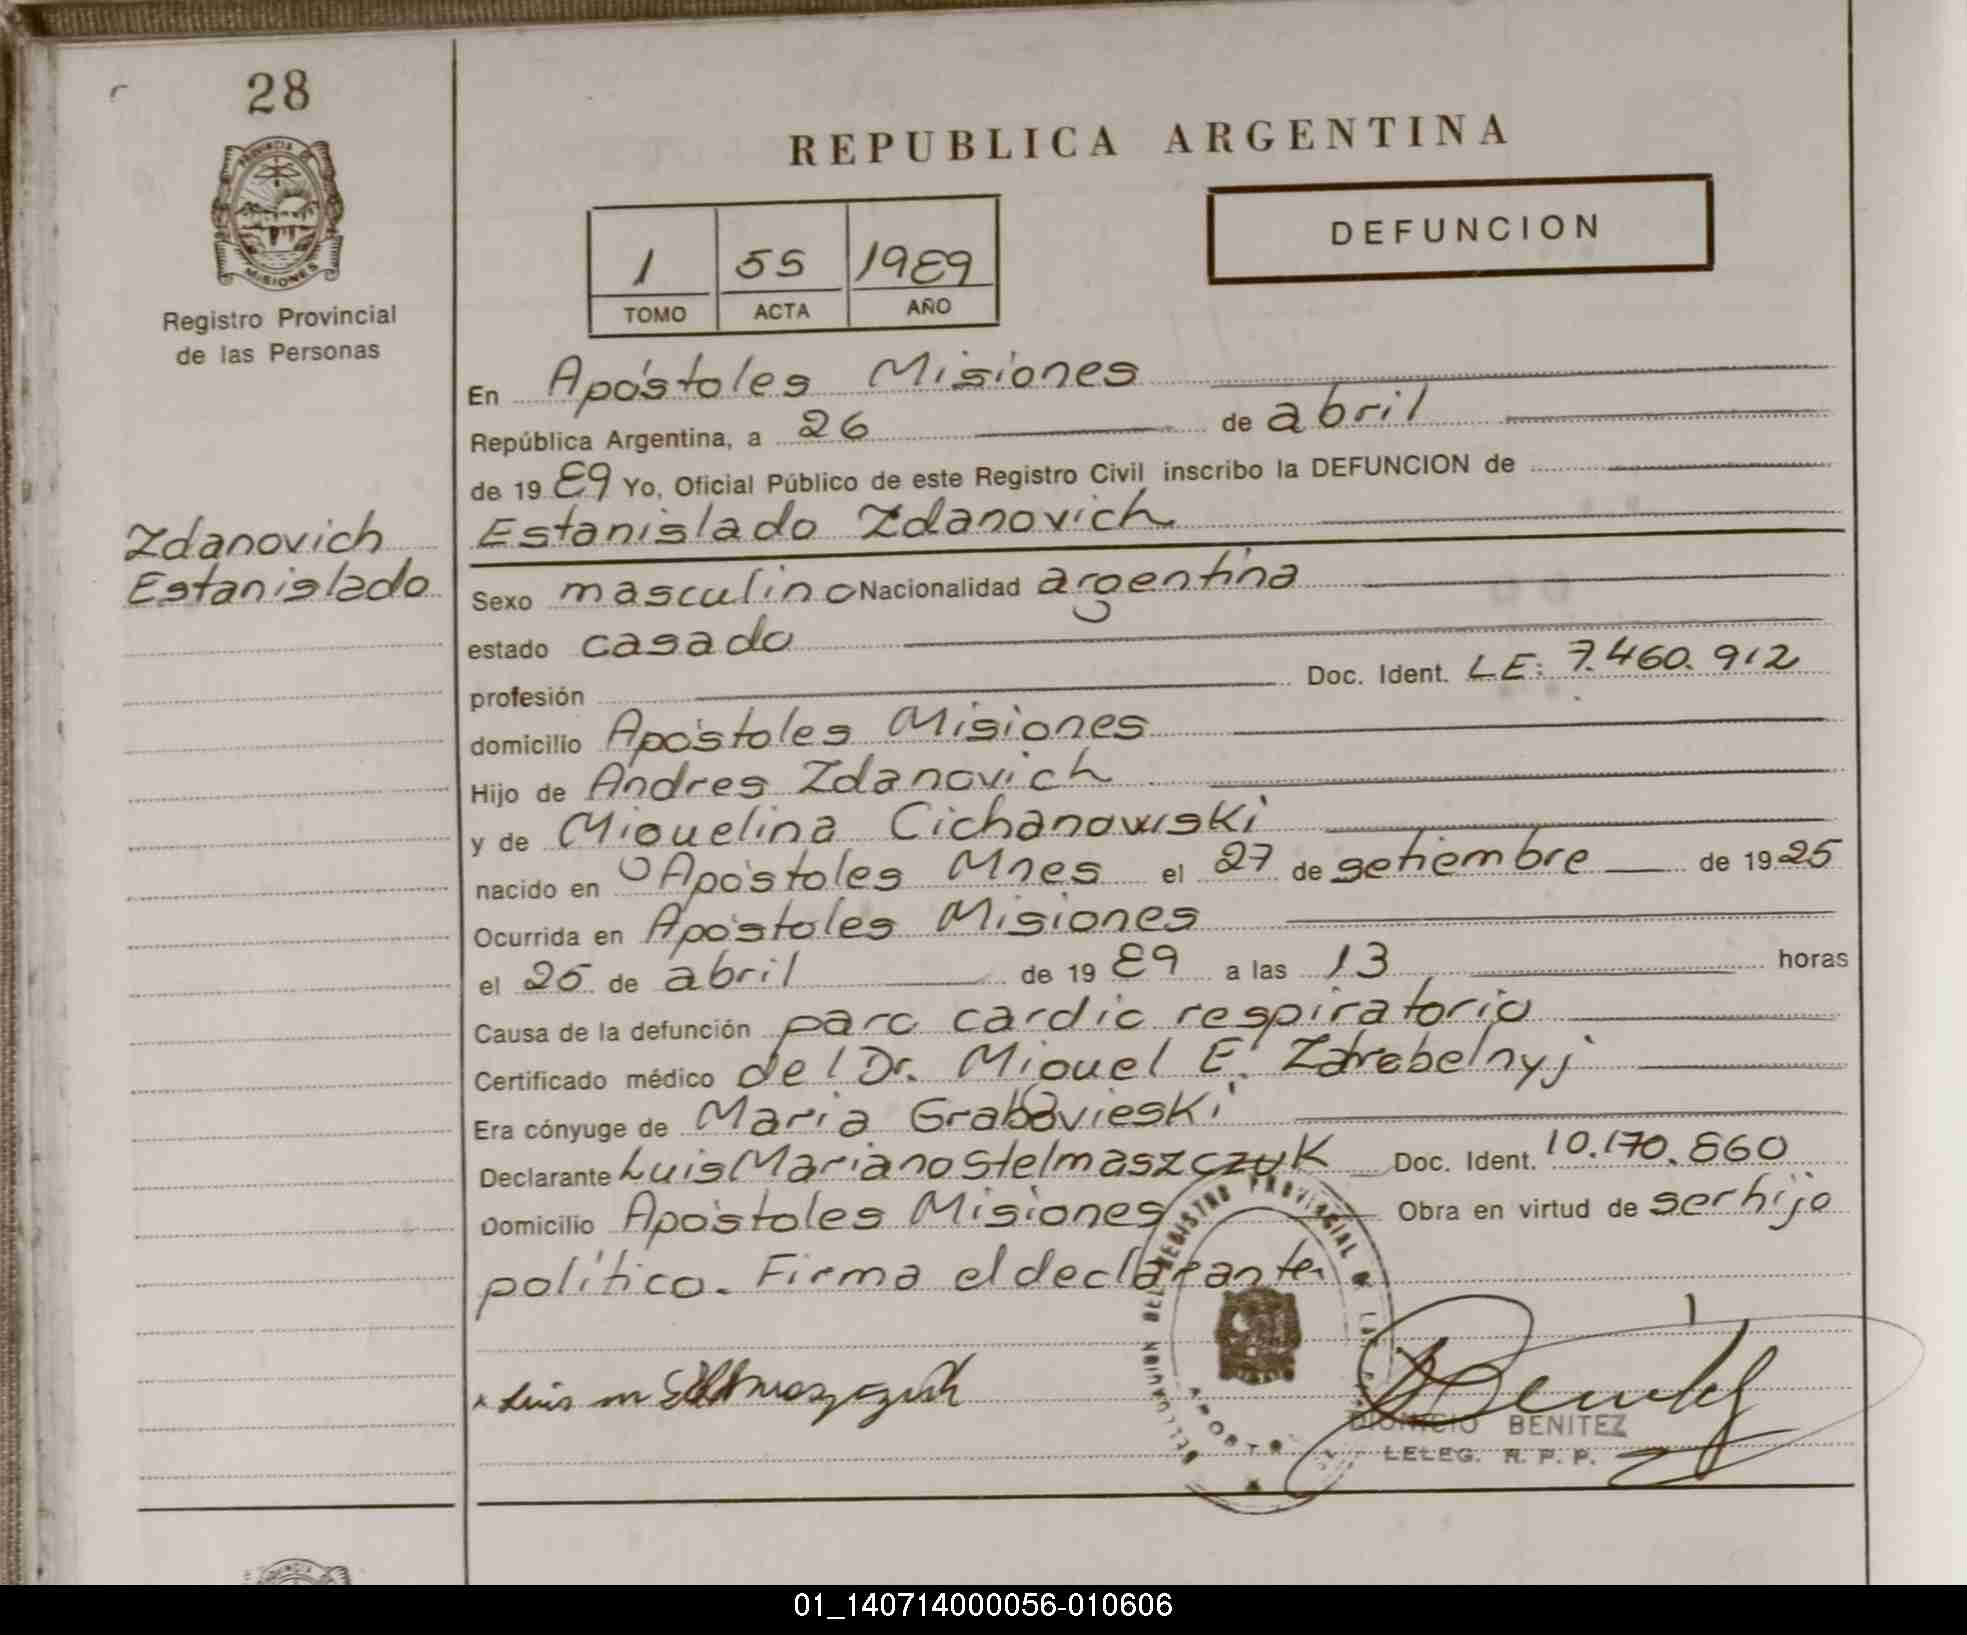 28
PROVINCIA DE
MISIONES
Registro Provincial
de las Personas
REPUBLICA ARGENTINA
DEFUNCION
1 55 1989
TOMO ACTA AÑO
En Apóstoles Misiones
República Argentina, a 26 de abril
de 19 89 Yo, Oficial Público de este Registro Civil inscribo la DEFUNCION de
Zdanovich
Estanislado
Estanislado Zdanovich
Sexo masculino Nacionalidad argentina
estado casado
profesión Doc. Ident. LE: 7.460.912
domicilio Apóstoles Misiones
Hijo de Andres Zdanovich
y de Miguelina Cichanowski
nacido en Apóstoles Mnes el 27 de setiembre de 19 25
Ocurrida en Apóstoles Misiones
el 25 de abril de 19 89 a las 13 horas
Causa de la defunción paro cardio respiratorio
Certificado médico del Dr. Miguel E.
Era cónyuge de Maria
Declarante Luis Mariano Stelmaszczuk Doc. Ident. 10.170.860
Domicilio Apóstoles Misiones Obra en virtud de ser hijo
político. Firma el declarante
REGISTRO PROVINCIAL DE
DIONICIO BENITEZ
R. P. P.
01_140714000056-010606